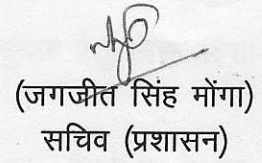 (जगजीत सिंह मोंगा)
सचिव (प्रशासन)